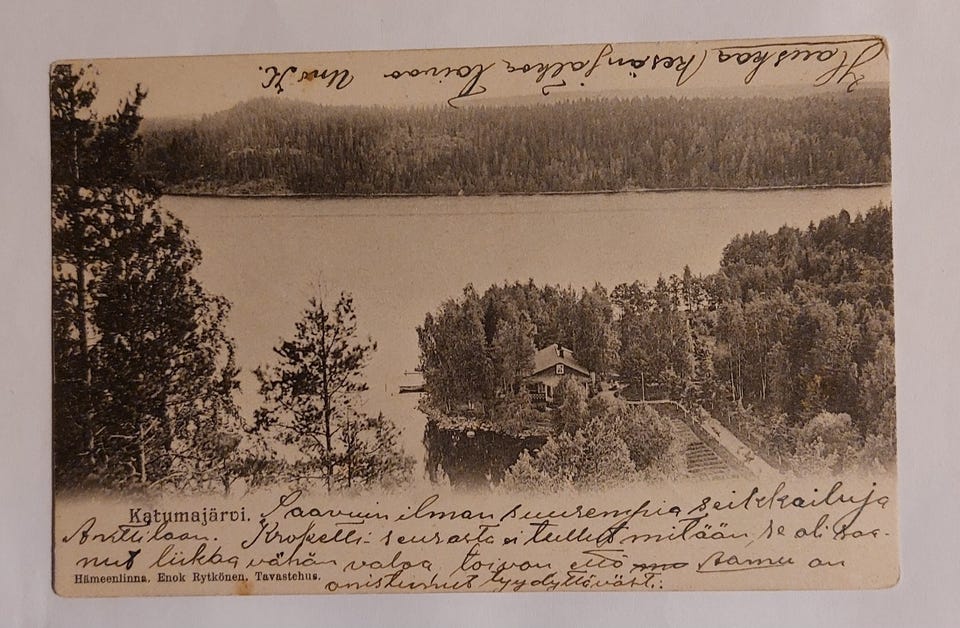 Hauskaa kesänjatkoa toivoo Uno K.
Katumajärvi.
Saavuin ilman suurempia seikkailuja
Anttilaan. Kroketti-seurasta ei tullut mitään, se oli saa-
nut liikka vähän valoa, toivon että samu on
Hämeenlinna, Enok Rytkönen, Tavastehus.
onistunnut tyydyttäväst.